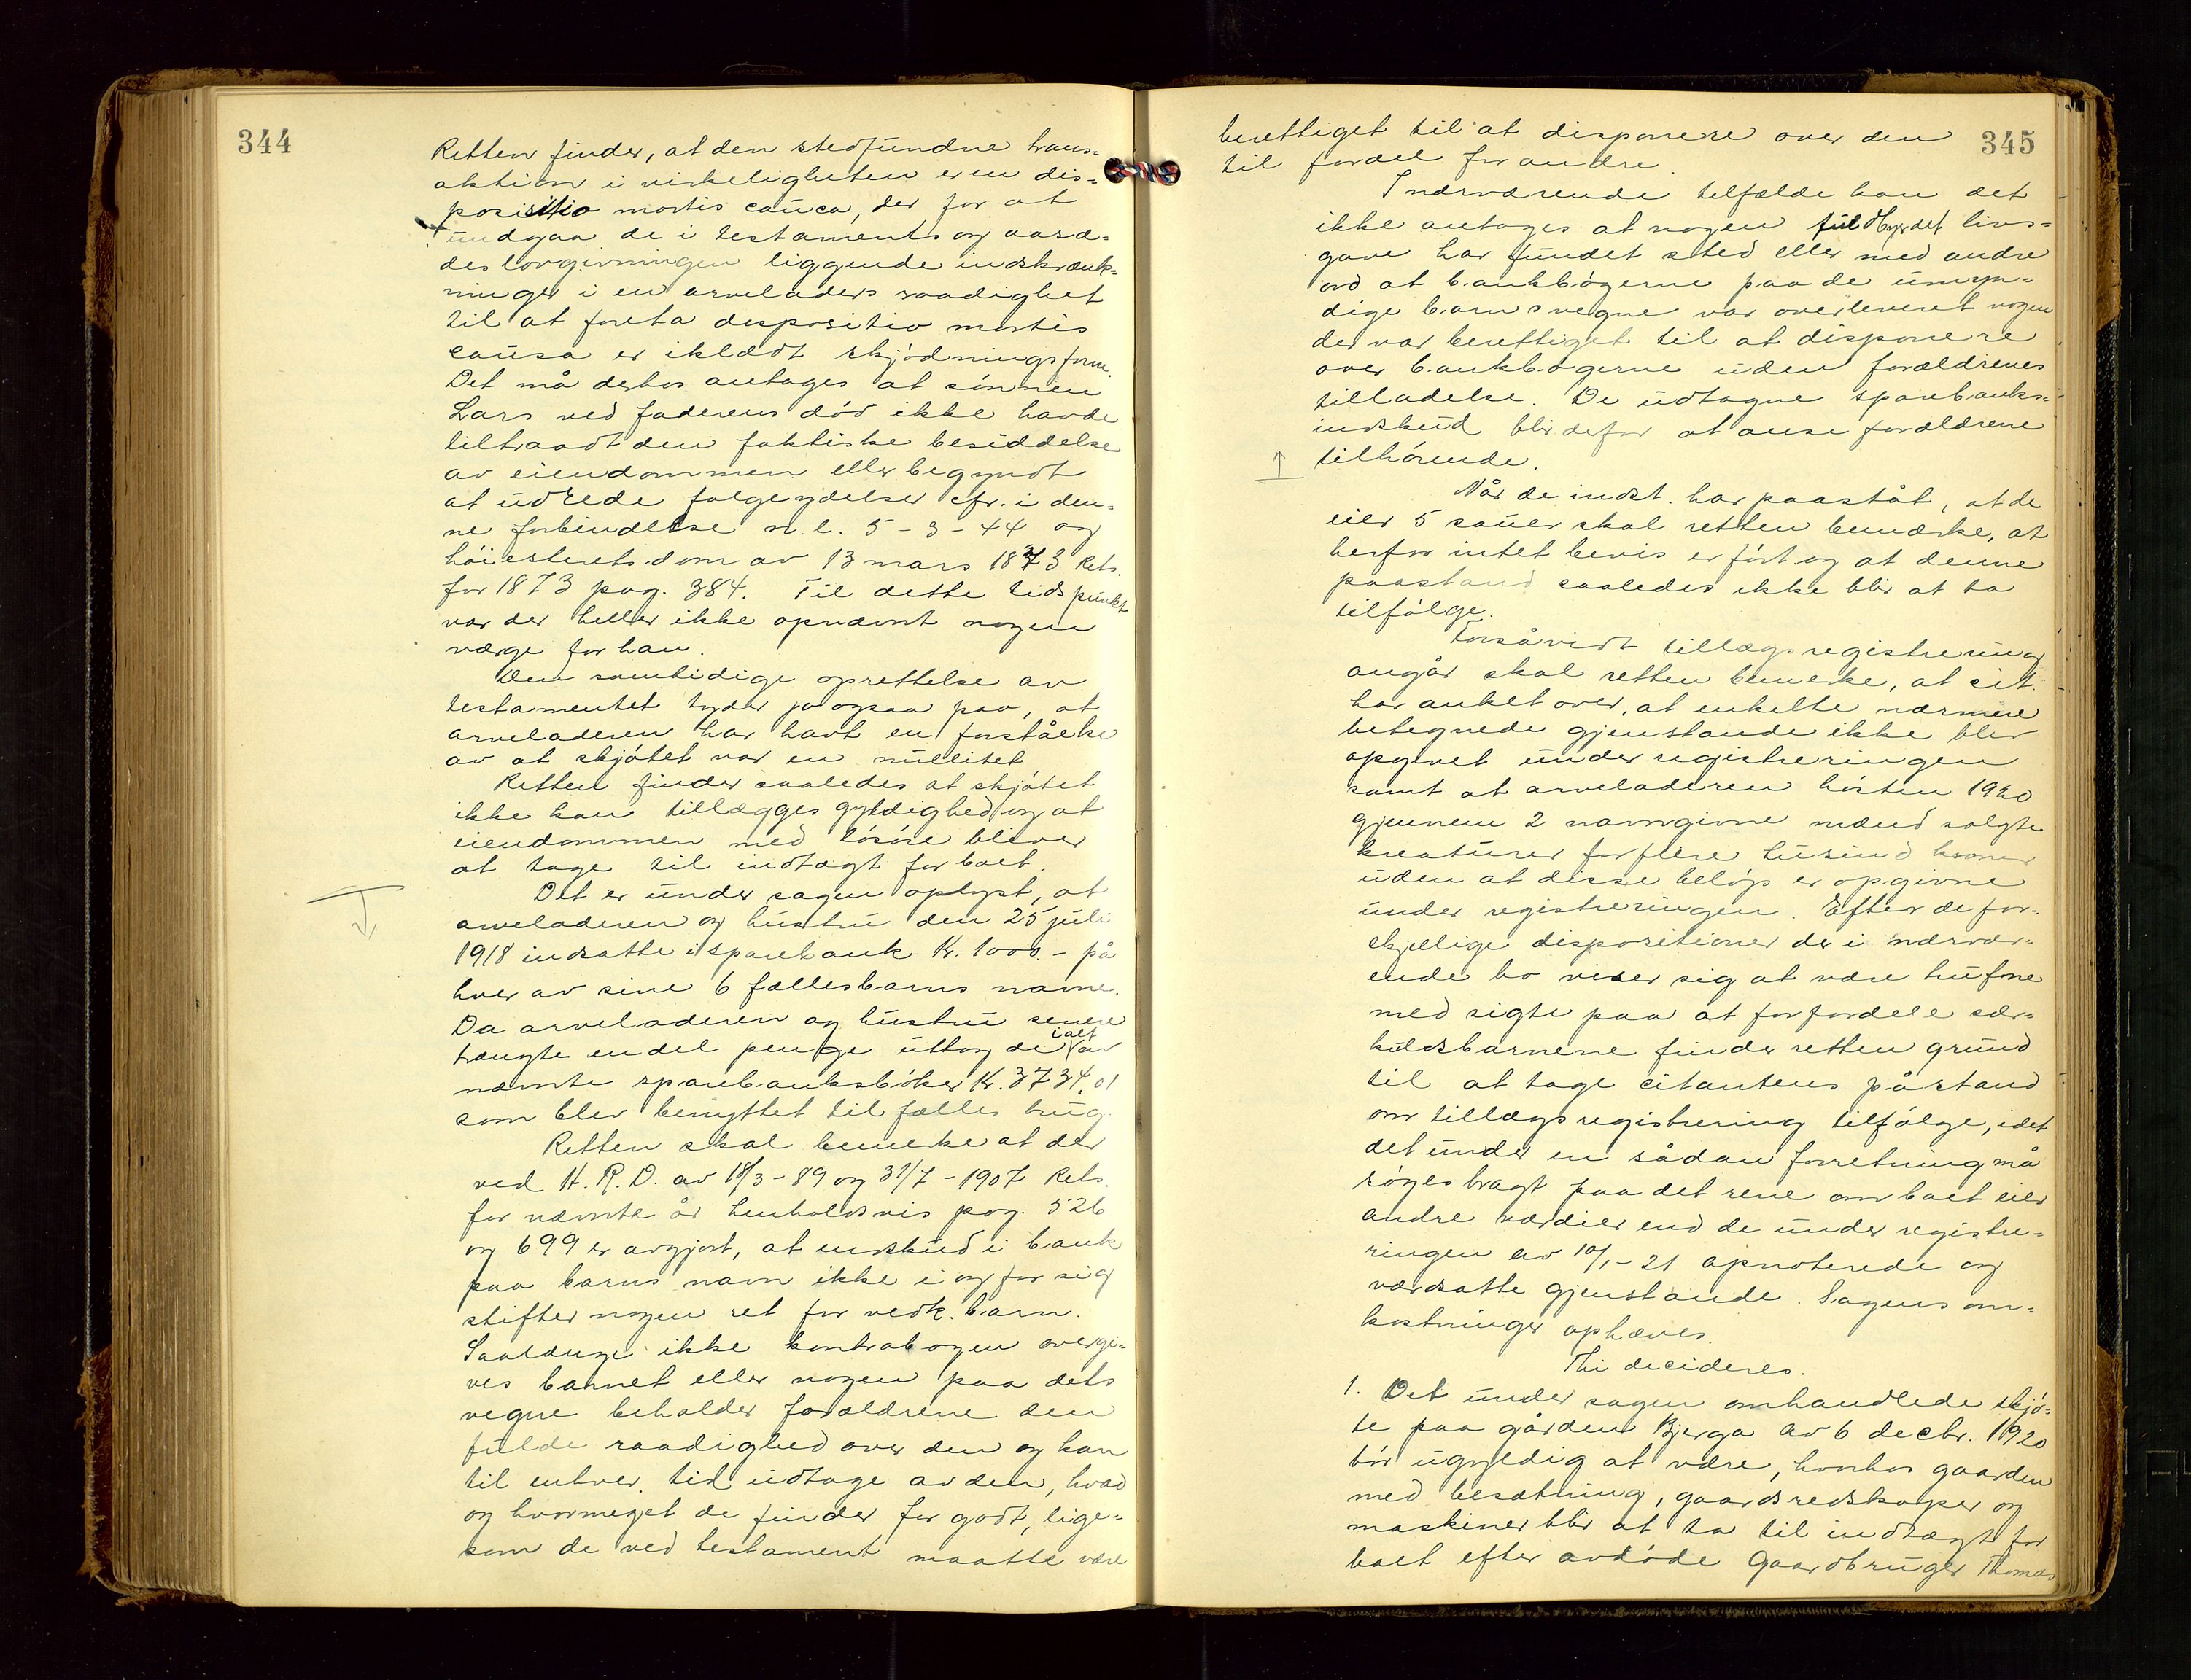 344
Retten finder, at den stedfundne trans=
aktion i virkeligheten er en dis=
positio mortis causa, der for at
undgaa de i testaments og aasæ=
deslovgivningen liggende indskrænk=
ninger i en arveladers raadighet
til at foreta dispositio mortis
causa er iklædt skjødningsform.
Det må derhos antages at sønnen
Lars ved faderens død ikke havde
tiltraadt den faktiske besiddelse
av eiendommen eller begyndt
at udrede følgeydelser cfr. i den=
ne forbindelse n. l. 5 - 3 - 44 og
høiesteretsdom av 13 mars 1873 Rets.
for 1873 pag. 384. Til dette tidspunkt
var der heller ikke opnævnt nogen
værge for han.
Den samtidige oprettelse av
testamentet tyder jo ogsaa paa, at
arveladeren har havt en forståelse
av at skjøtet var en nullitet
Retten finder saaledes at skjøtet
ikke kan tillægges gyldighed og at
eiendommen med løsøre bliver
at tage til indtægt for boet.
Det er under sagen oplyst, at
arveladeren og hustru den 25 juli
1918 indsatte i Sparebank Kr. 1000.- på
hver av sine 6 fællesbarns navne.
Da arveladeren og hustru senere
trængte endel penge uttog de ialt av
nævnte sparebanksbøker Kr. 3734.01
som blev benyttet til fælles brug.
Retten skal bemerke at der
ved H. R. D. av 18/3 - 89 og 31/7 - 1907 Rets.
for nævnte år henholdsvis pag. 526
og 699 er avgjort, at indskud i bank
paa barns navn ikke i og for sig
stifter nogen ret for vedk. barn.
Saalænge ikke kontrabogen overgi=
ves barnet eller nogen paa dets
vegne beholder forældrene den
fulde raadighed over den og kan
til enhver tid udtage av den, hvad
og hvormeget de finder for godt, lige=
som de ved testament maatte være
345
berettiget til at disponere over den
til fordel for andre.
I nærværende tilfælde kan det
ikke antages at nogen fuldbyrdet livs=
gave har fundet sted eller med andre
ord at bankbøgerne paa de umyn=
dige barns vegne var overleveret nogen
der var berettiget til at disponere
over bankbøgerne uden forældrenes
tilladelse. De udtagne sparebanks=
indskud blir derfor at anse forældrene
tilhørende.
Når de indst. har paaståt, at de
eier 5 sauer skal retten bemærke, at
herfor intet bevis er ført og at denne
paastand saaledes ikke blir at ta
tilfølge.
Forsåvidt tillægsregistrering
angår skal retten bemerke, at cit.
har anket over, at enkelte nærmere
betegnede gjenstande ikke blev
opgivet under registreringen
samt at arveladeren høsten 1920
gjennem 2 navngivne mænd solgte
kreaturer for flere tusind kroner
uden at disse beløp er opgivne
under registreringen. Efter de for=
skjellige dispositioner der i nærvær=
ende bo viser sig at være trufne
med sigte paa at forfordele sær=
kuldsbarnene finder retten grund
til at tage citantens påstand
om tillægsregistrering tilfølge, idet
det under en sådan forretning må
søges bragt paa det rene om boet eier
andre værdier end de under registre=
ringen av 10/1 - 21 opnoterede og
værdsatte gjenstande. Sagens om=
kostninger ophæves.
Thi decideres.
1. Det under sagen omhandlede skjø=
te paa gården Bjerga av 6 decbr. 1920
bør ugyldig at være, hvorhos gaarden
med besætning, gaardsredskaper og
maskiner blir at ta til indtægt for
boet efter avdøde Gaardbruger Thomas